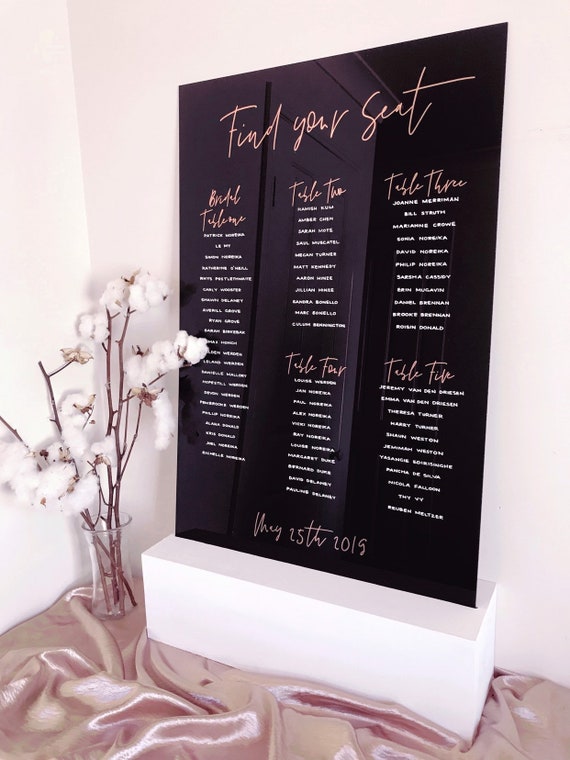 Find your Seat
Bridal
Table one
PATRICK NOREIKA
LE MY
SIMON NOREIKA
KATHERINE O'NEILL
RHYS POSTLETHWAITE
CARLY WOOSTER
SHAWN DELANEY
AVERILL GROVE
RYAN GROVE
SARAH BIRKBRAK
LELAND WERDEN
DANIELLE MALLORY
HOPESTILL WERDEN
DEVON WERDEN
PEMBROKE WERDEN
PHILLIP NOREIKA
ALANA DONALD
KRIS DONALD
JOEL NOREIKA
RICHELLE NOREIKA
Table Two
HAMISH KUM
AMBER CHEN
SARAH MOTE
SAUL MUSCATEL
MEGAN TURNER
MATT KENNEDY
AARON HINZE
JILLIAN HINSE
SANDRA BONELLO
MARC BONELLO
CULUM BENNINGTON
Table Three
JOANNE MERRIMAN
BILL STRUTH
MARIANNE CROWE
SONIA NOREIKA
DAVID NOREIKA
PHILIP NOREIKA
SARSHA CASSIDY
ERIN MUGAVIN
DANIEL BRENNAN
BROOKE BRENNAN
ROISIN DONALD
Table Four
LOUISE WERDEN
JAN NOREIKA
PAUL NOREIKA
ALEX NOREIKA
VICKI NOREIKA
RAY NOREIKA
LOUISE NOREIKA
MARGARET DUKE
BERNARD DUKE
DAVID DELANEY
PAULINE DELANEY
Table Five
JEREMY VAN DEN DRIESEN
EMMA VAN DEN DRIESEN
THERESA TURNER
HARRY TURNER
SHAUN WESTON
JEMIMAH WESTON
YASANGIE EDIRISINGHE
PANCHA DE SILVA
NICOLA FALLOON
THY VY
REUBEN MELTZER
May 25th 2019